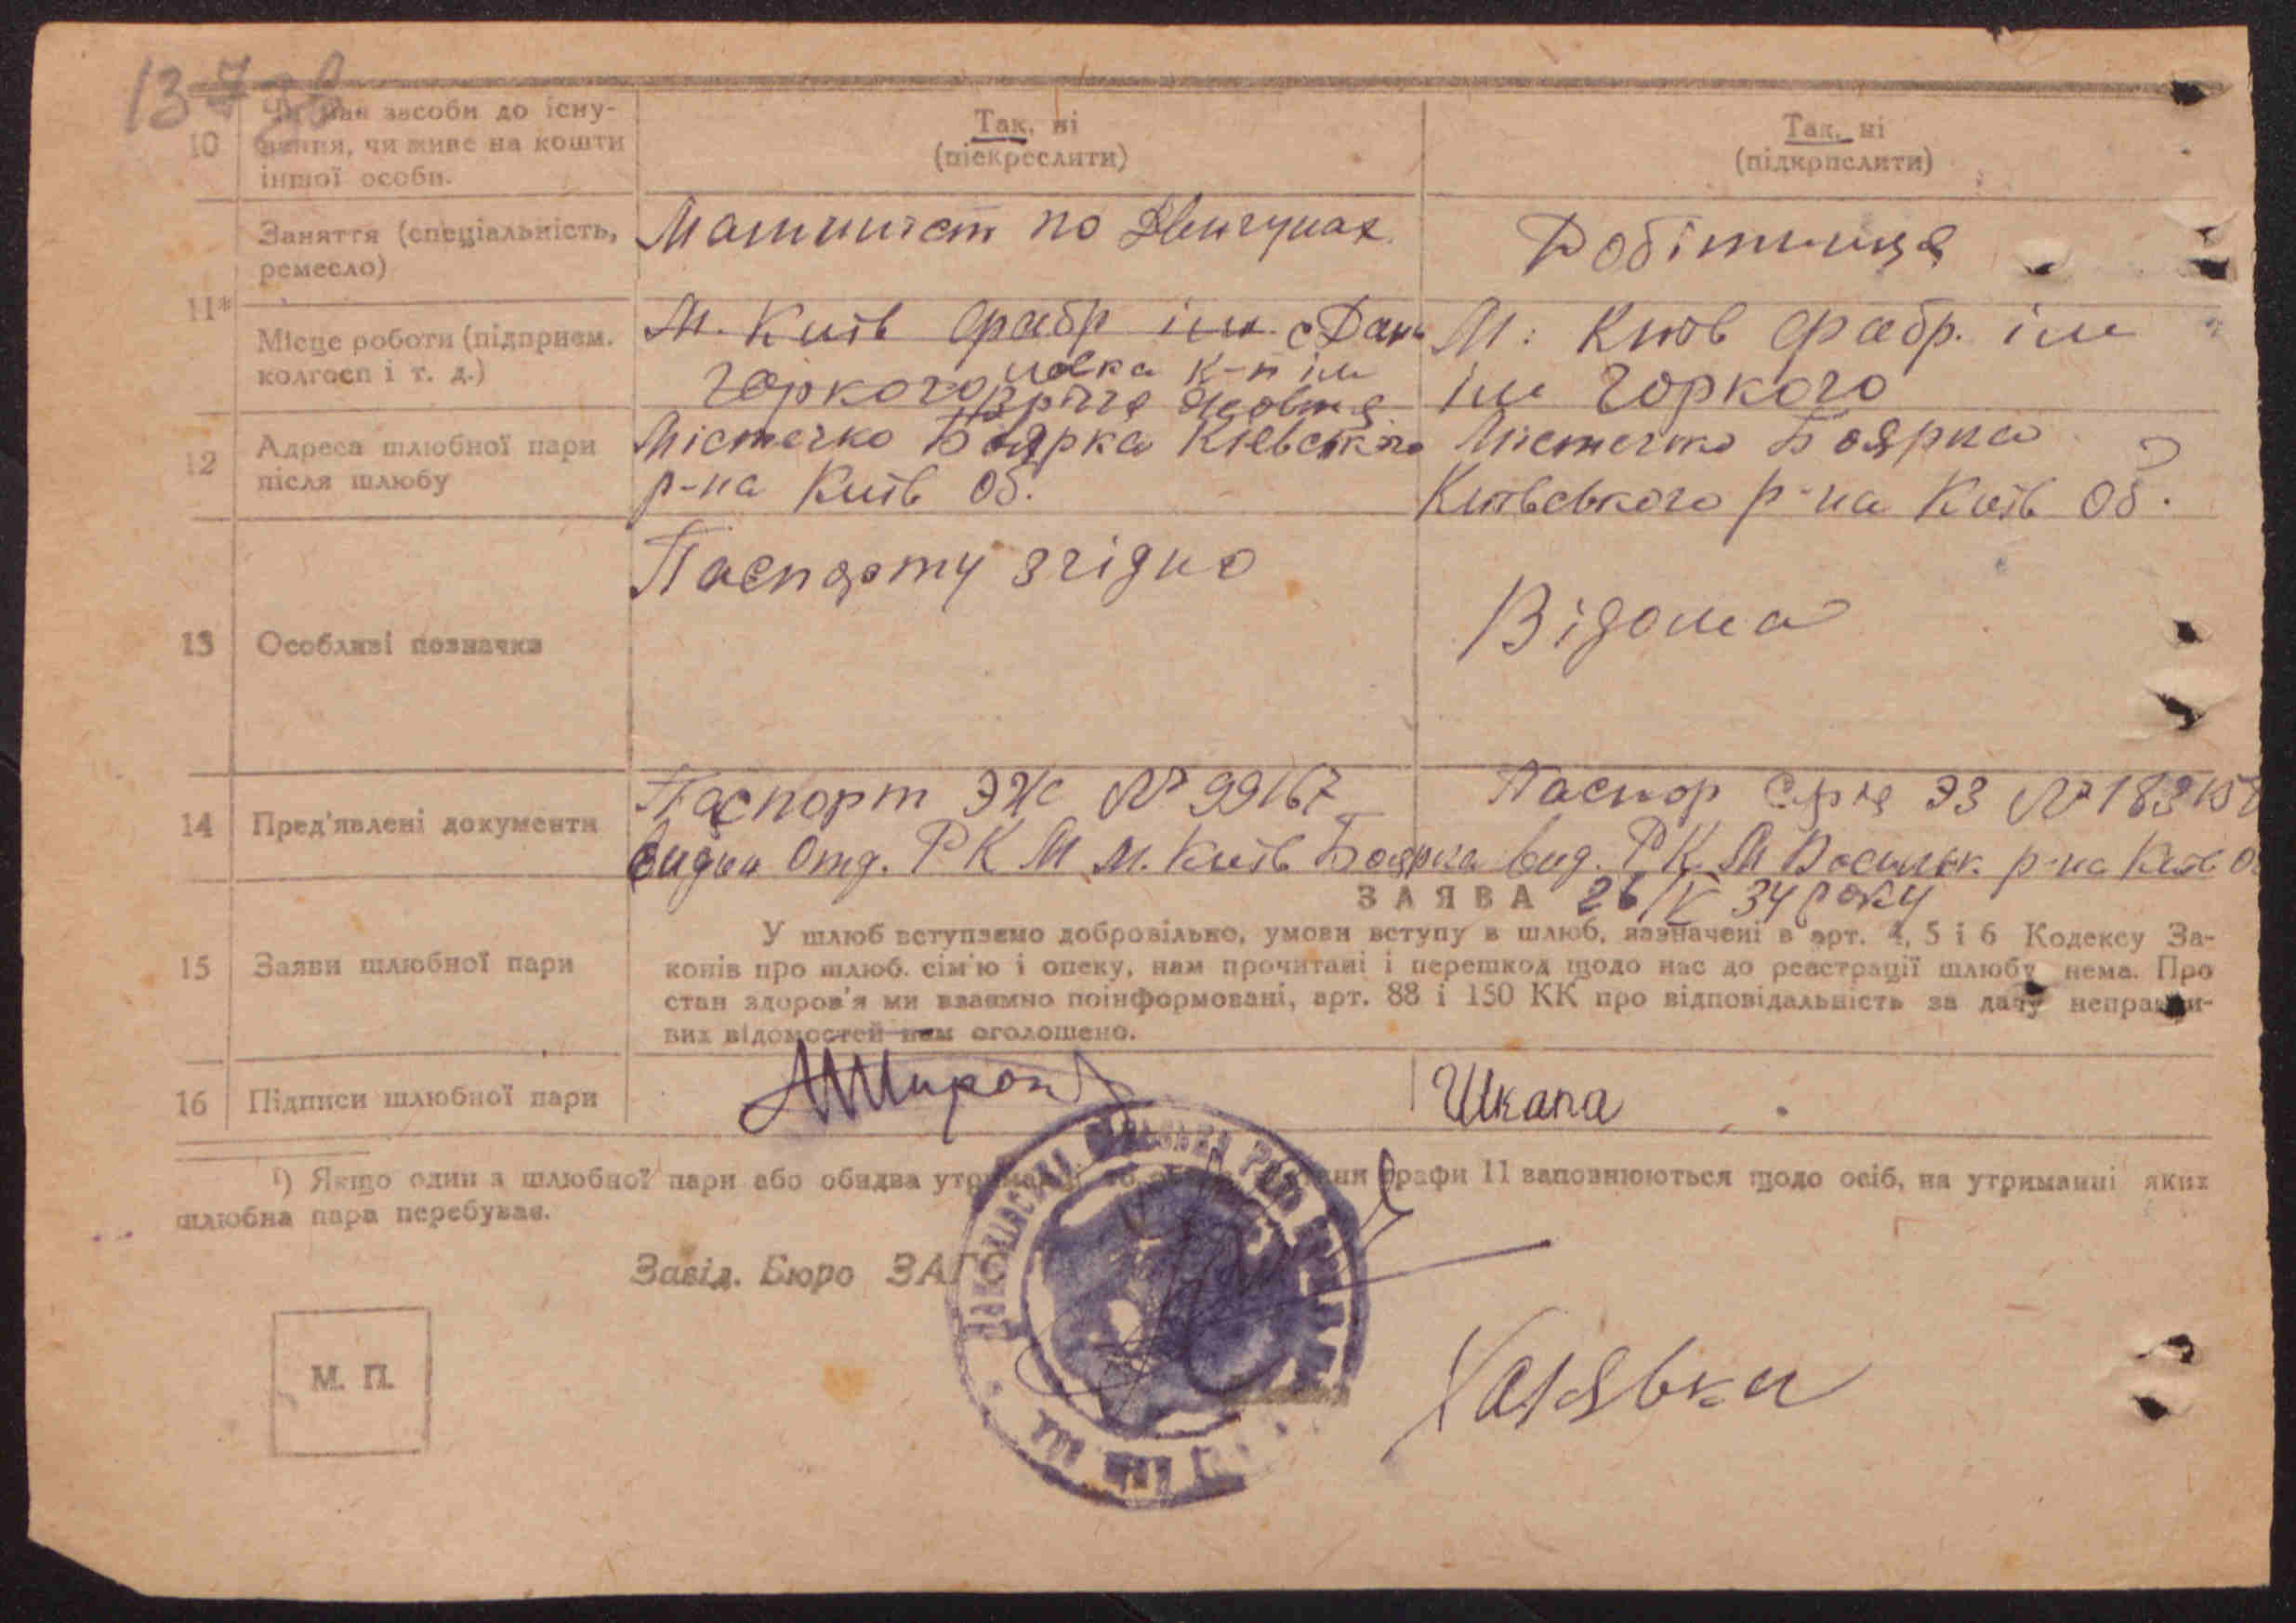 13
10 Чи має засоби до існу-
вання, чи живе на кошти
іншої особи.
Так, ні
(підкреслити)
Так, ні
(підкрпслити)
11*
Заняття (спеціальність,
ремесло)
Машиніст по Двигунах.
Робітниця
Місце роботи (підприєм.
колгосп і т. д.)
М. Київ фабр ім.
Горкого
к-п ім
М. Київ фабр. ім
ім Горкого
12 Адреса шлюбної пари
після шлюбу
Містечко Боярка Київського
р-на Київ Об.
Містечко Боярка
Київського р-на Київ Об.
13 Особливі позначки
Паспорту згідно
Відома
14 Пред'явлені документи
Паспорт ЭЖ № 99167
видан Отд. Р К М м. Київ Боярка
Паспор Серія ЭЗ №
вид. Р К М Васильк. р-на Київ О
26/V 34 року
15 Заяви шлюбної пари
ЗАЯВА
У шлюб вступаємо добровільно, умови вступу в шлюб, назначені в арт. 4, 5 і 6 Кодексу За-
конів про шлюб. сім'ю і опеку, нам прочитані і перешкод щодо нас до реєстрації шлюбу нема. Про
стан здоров'я ми взаємно поінформовані, арт. 88 і 150 КК про відповідальність за дачу неправди-
вих відомостей нам оголошено.
16 Підписи шлюбної пари
Шкапа
¹) Якщо один з шлюбної пари або обидва графи 11 заповнюються щодо осіб, на утриманні яких
шлюбна пара перебуває.
Завід. Бюро ЗАГС
М. П.